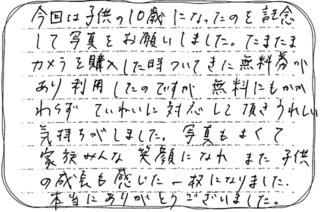 今回は子供の10歳になったのを記念
して写真をお願いしました。たまたま
カメラを購入した時ついてきた無料券が
あり利用したのですが 無料にもかか
わらず ていねいに対応して頂きうれしい
気持ちがしました。写真もよくて
家族みんな 笑顔になれ また 子供
の成長も感じた 一枚になりました.
本当にありがとうございました。